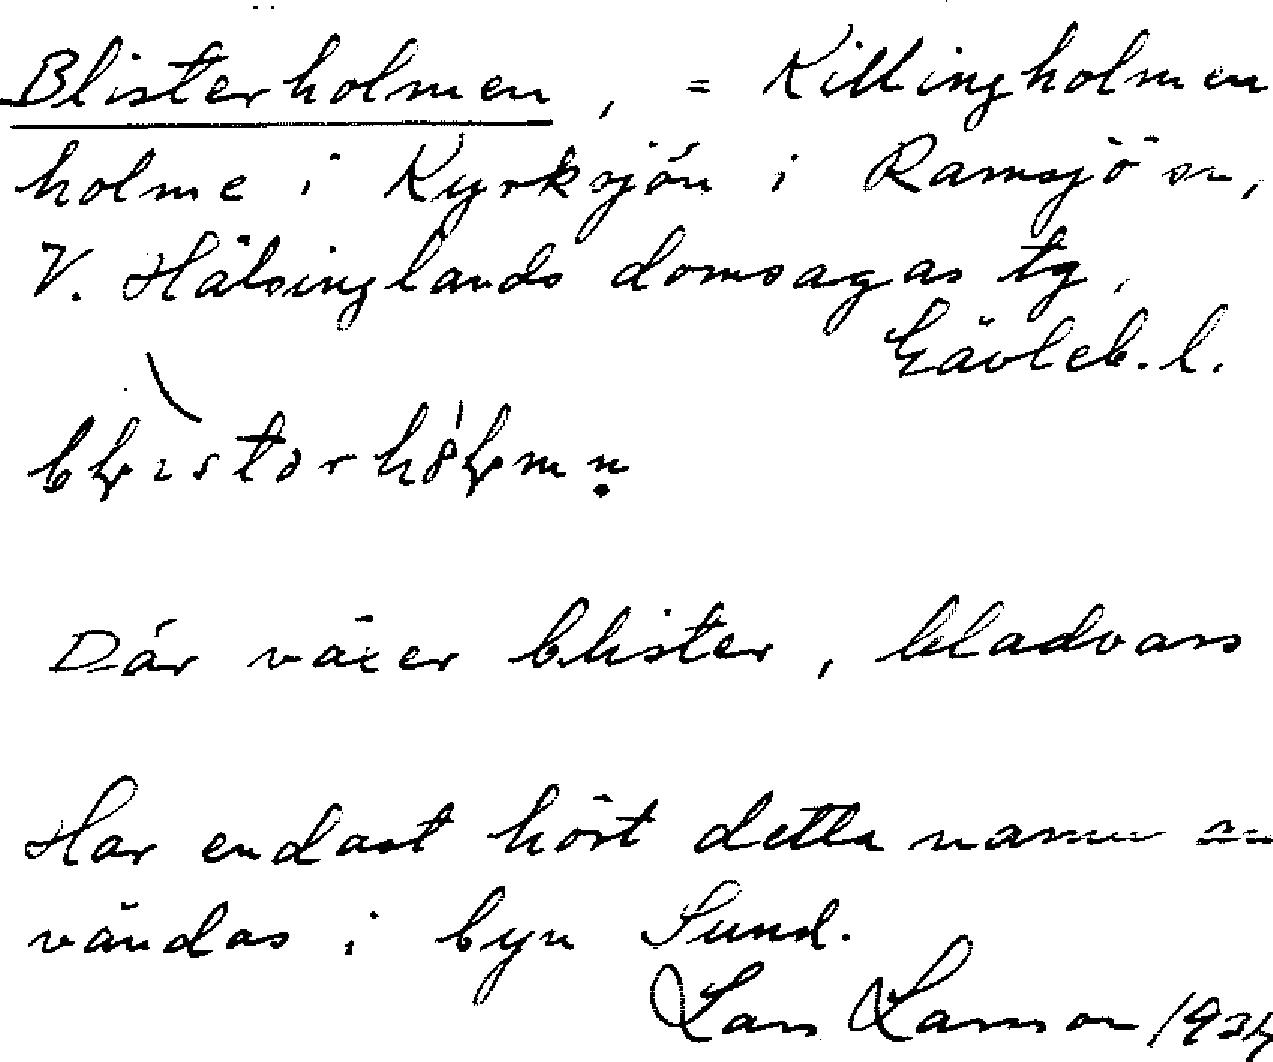 Blisterholmen, = Killingholmen
holme i Kyrksjön i Ramsjö sn,
V. Hälsinglands domsagas tg,
Gävleb. l.
Där växer blister, bladvass
Har endast hört detta namn an
vändas i byn Sund.
Lars Larsson